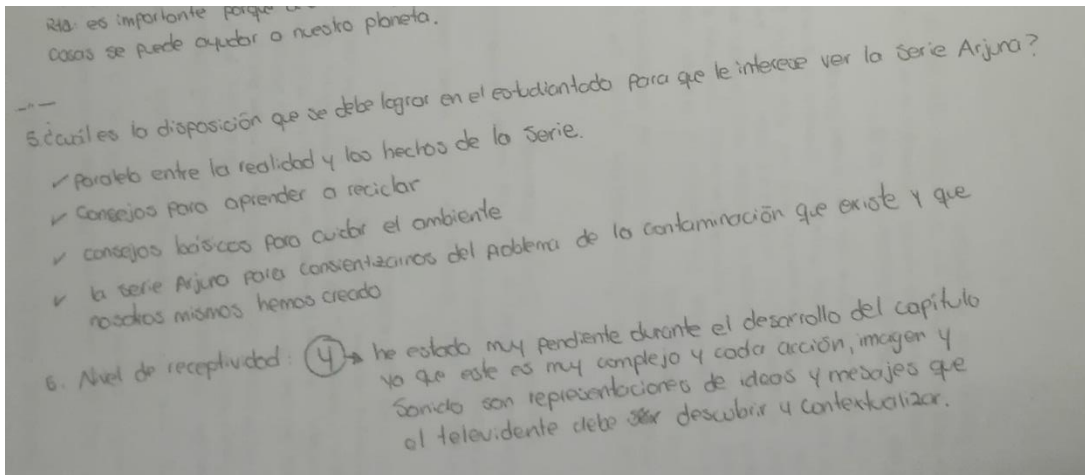 Rta: es importante porque
cosas se puede ayudar a nuestro planeta.
5. ¿cuál es la disposición que se debe lograr en el estudiantado para que le interese ver la serie Arjuna?
✓ Paralelo entre la realidad y los hechos de la serie.
✓ Consejos para aprender a reciclar
✓ consejos básicos para cuidar el ambiente
✓ la serie Arjuna para consientizarnos del problema de la contaminación que existe y que
nosotros mismos hemos creado
6. Nivel de receptividad: 4 → he estado muy pendiente durante el desarrollo del capítulo
ya que este es muy complejo y cada acción, imagen y
Sonido son representaciones de ideas y mesajes que
el televidente debe descubrir y contextualizar.